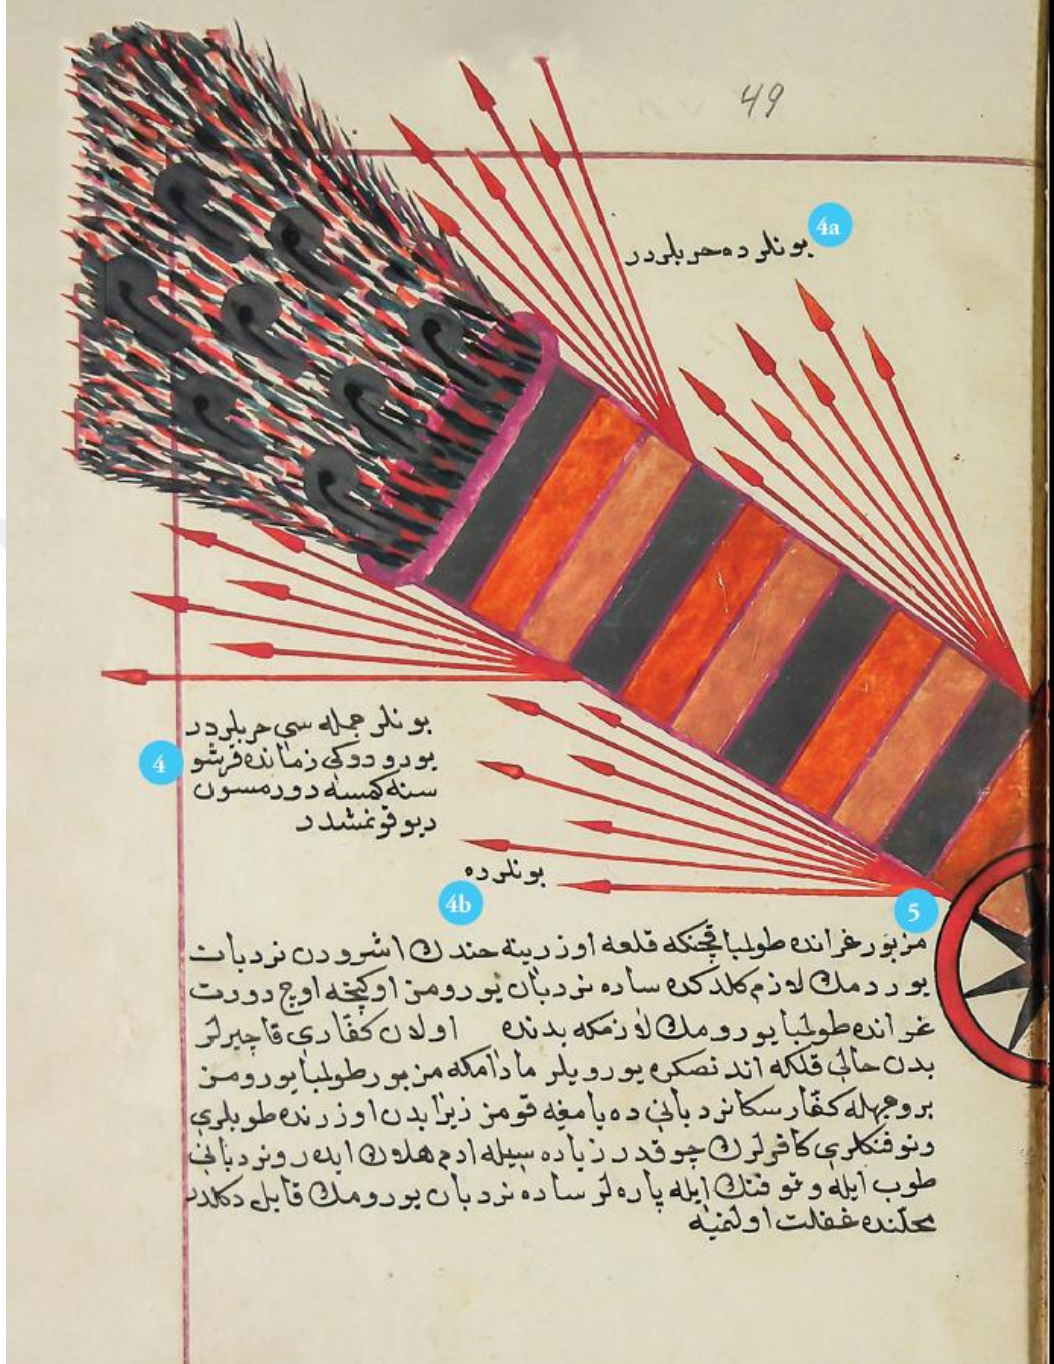 49
4a
بونلر ده حربلردر
بونلر جمله سی حربلردر
یورودوکی زمانده قرشو
4
سنه کمسه دورمسون
دیو قونمشدر
بونلر ده
4b
5
مزبور غرانده طولمبا قچنکه قلعه اوزرینه حندك اشرودن نردبان
یوردمك لازم کلدکده ساده نردبان یورومز اوکنجه اوچ دورت
غرانده طولمبا یورومك لازمکه بدنده اولان کفاری قاچیرلر
بدن حالی قلکه اندنصکره یورویلر مادامکه مزبور طولمبا یورومز
بر وجهله کفار سکا نردبانی ده یامغه قومز زیرا بدن اوزرنده طوبلری
وتوفنکلری کافرلرك چوقدر زیاده سیله ادم هلاك ایدر ونردبانی
طوب ایله وتوفنك ایله پاره لر ساده نردبان یورومك قابل دکلدر
محلنده غفلت اولنمیه